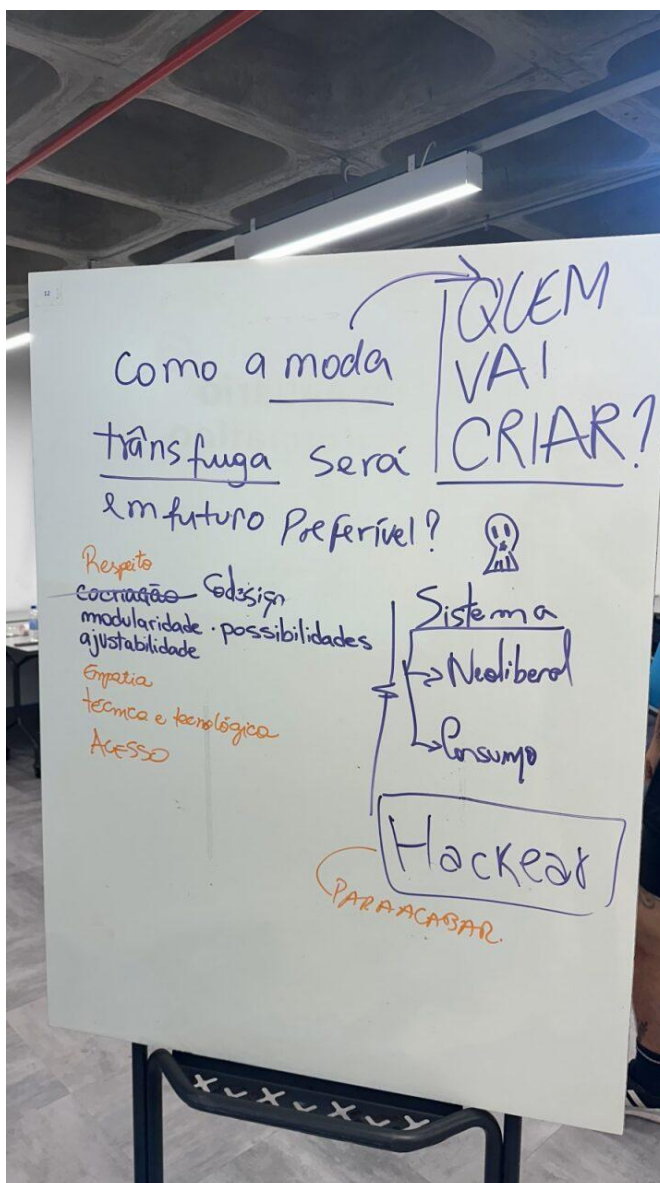 12
QUEM
VAI
CRIAR?
Como a moda
trânsfuga será
em futuro Preferível?
Respeito
cocriação Codesign
modularidade · possibilidades
ajustabilidade
Empatia
técnica e tecnológica
ACESSO
Sistema
Neoliberal
Consumo
Hackear
PARA ACABAR.